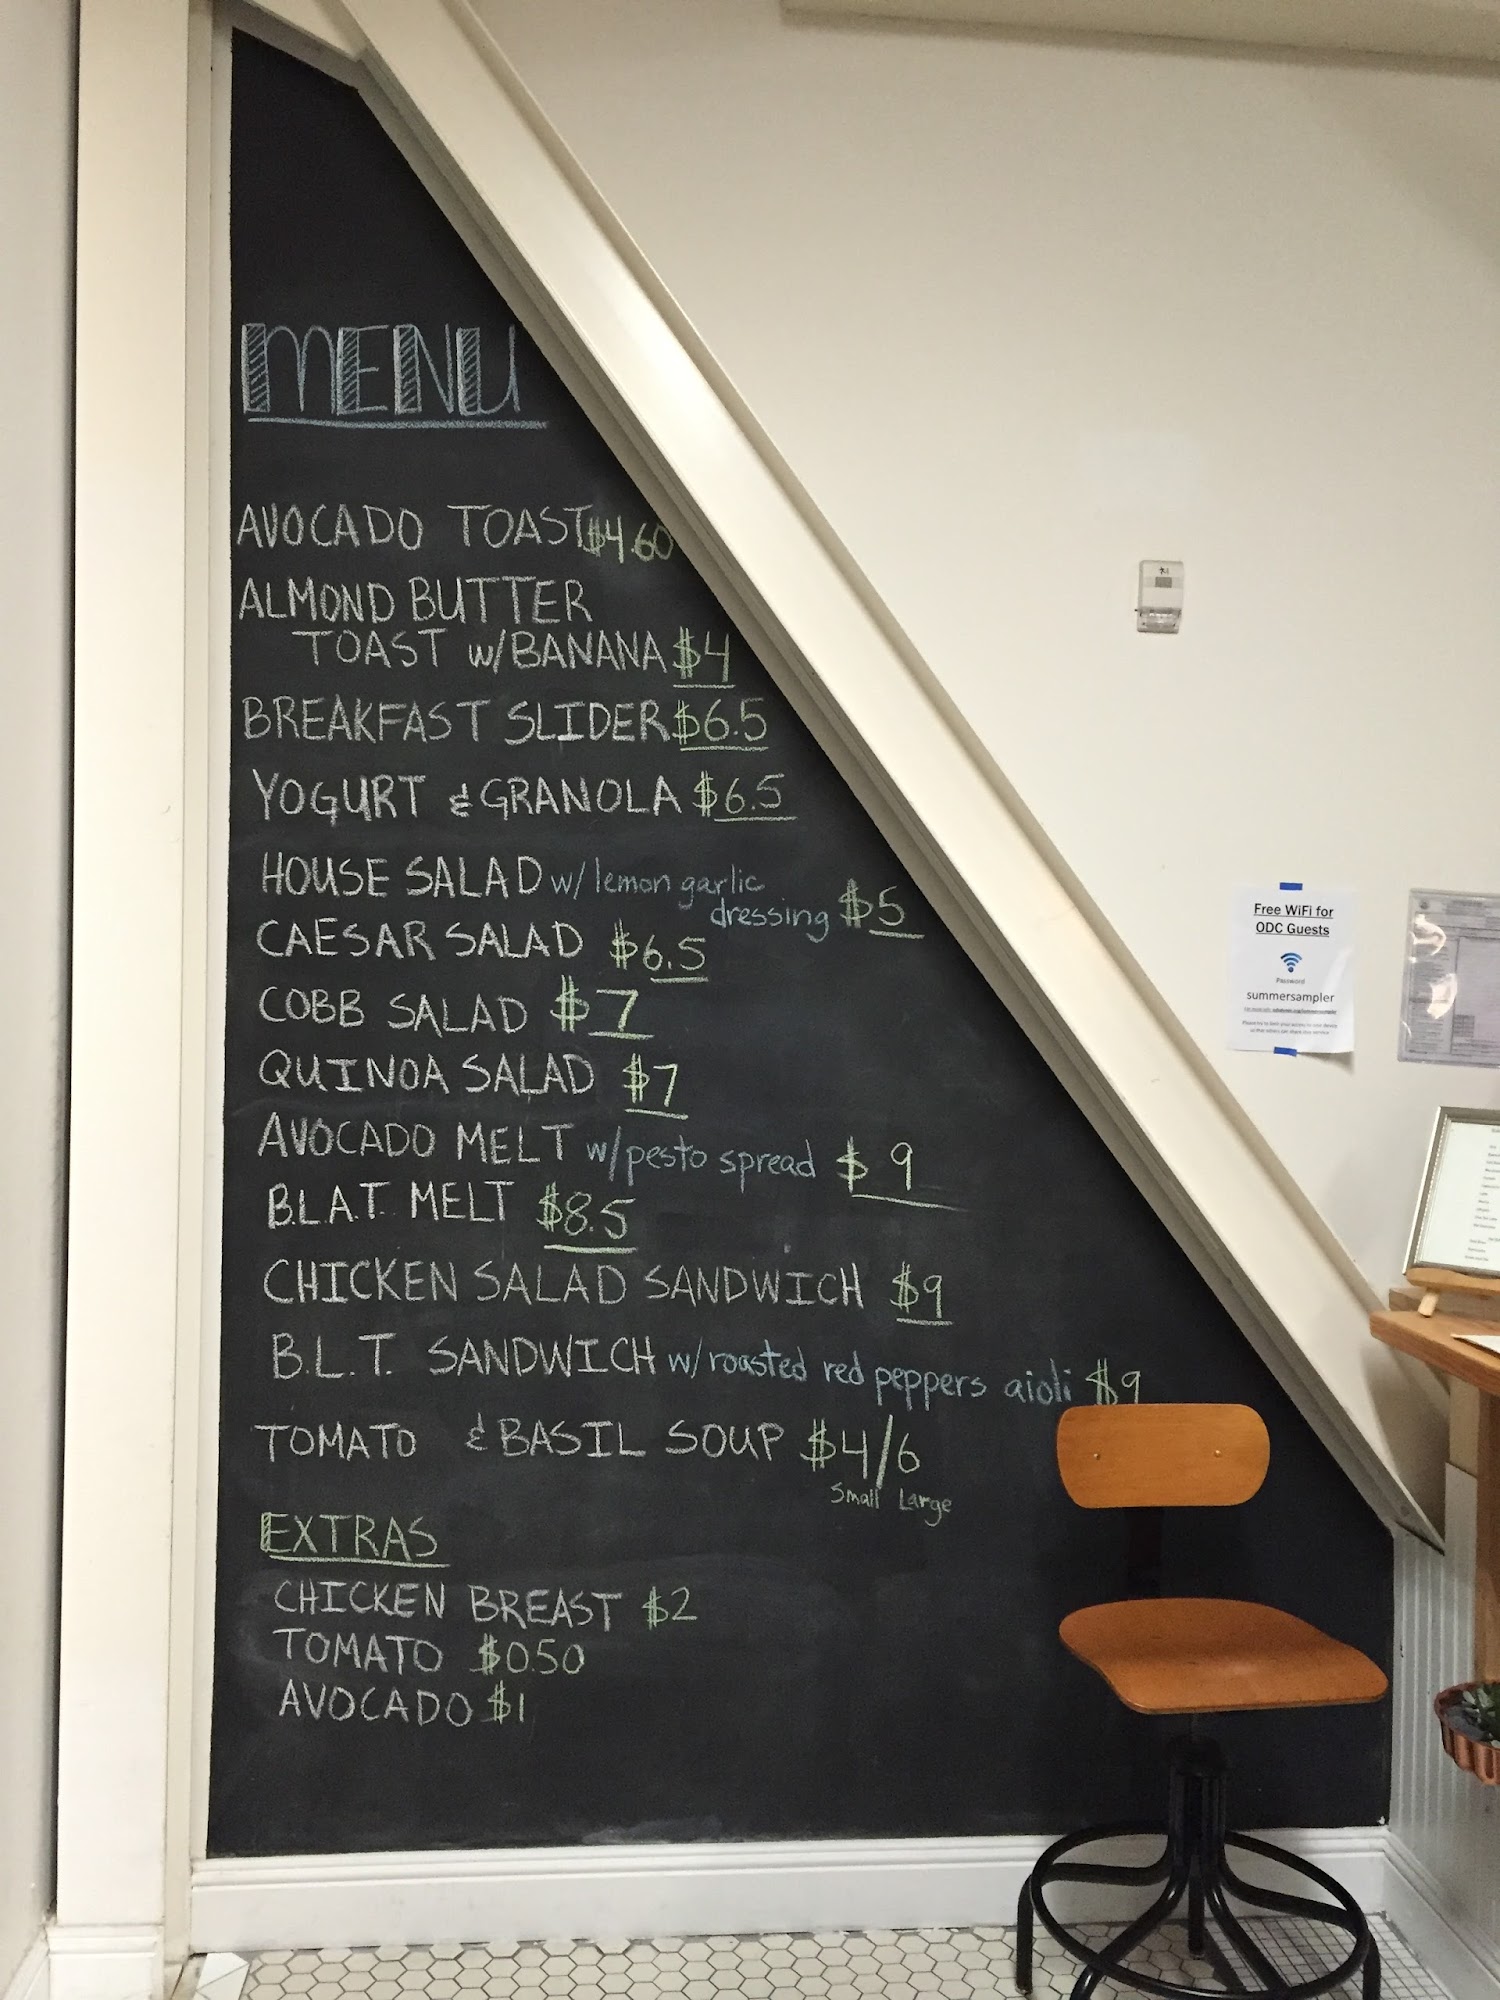 MENU
AVOCADO TOAST $4.60
ALMOND BUTTER
TOAST w/BANANA $4
BREAKFAST SLIDER $6.5
YOGURT & GRANOLA $6.5
HOUSE SALAD w/ lemon garlic
dressing $5
CAESAR SALAD $6.5
COBB SALAD $7
QUINOA SALAD $7
AVOCADO MELT w/pesto spread $9
B.L.A.T. MELT $8.5
CHICKEN SALAD SANDWICH $9
B.L.T. SANDWICH w/ roasted red peppers aioli $9
TOMATO & BASIL SOUP $4/6
Small Large
EXTRAS
CHICKEN BREAST $2
TOMATO $0.50
AVOCADO $1
Free WiFi for
ODC Guests
Password
summersampler